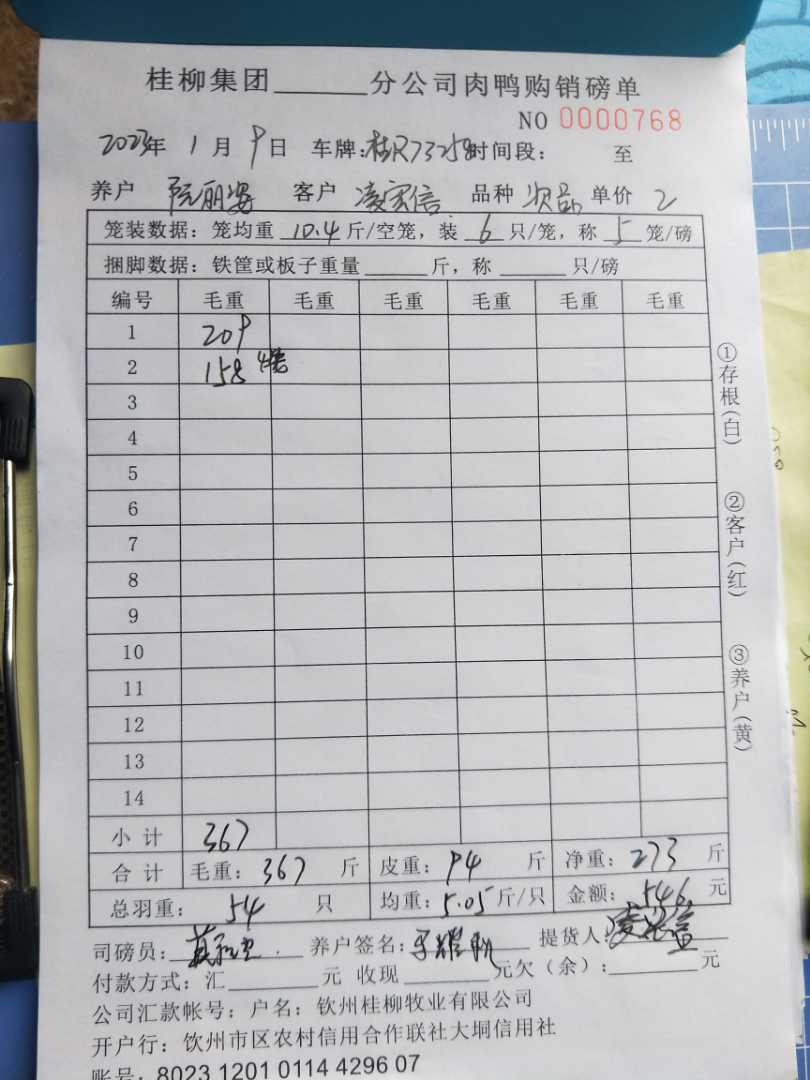 桂柳集团______分公司肉鸭购销磅单
NO 0000768
2023年 1 月 9 日 车牌:桂R73258 时间段: 至
养户 阮丽姿 客户 凌宗信 品种 次品 单价 2
笼装数据: 笼均重 10.4 斤/空笼, 装 6 只/笼, 称 5 笼/磅
捆脚数据: 铁筐或板子重量______斤, 称______只/磅
编号 毛重 毛重 毛重 毛重 毛重 毛重
1 209
2 158 4笼
3
4
5
6
7
8
9
10
11
12
13
14
小计 367
合计 毛重: 367 斤 皮重: 94 斤 净重: 273 斤
总羽重: 54 只 均重: 5.05 斤/只 金额: 546 元
司磅员: 养户签名: 提货人:
付款方式: 汇______元 收现______元欠(余):______元
公司汇款帐号: 户名: 钦州桂柳牧业有限公司
开户行: 钦州市区农村信用合作联社大垌信用社
账号: 8023 1201 0114 4296 07
①存根(白)
②客户(红)
③养户(黄)